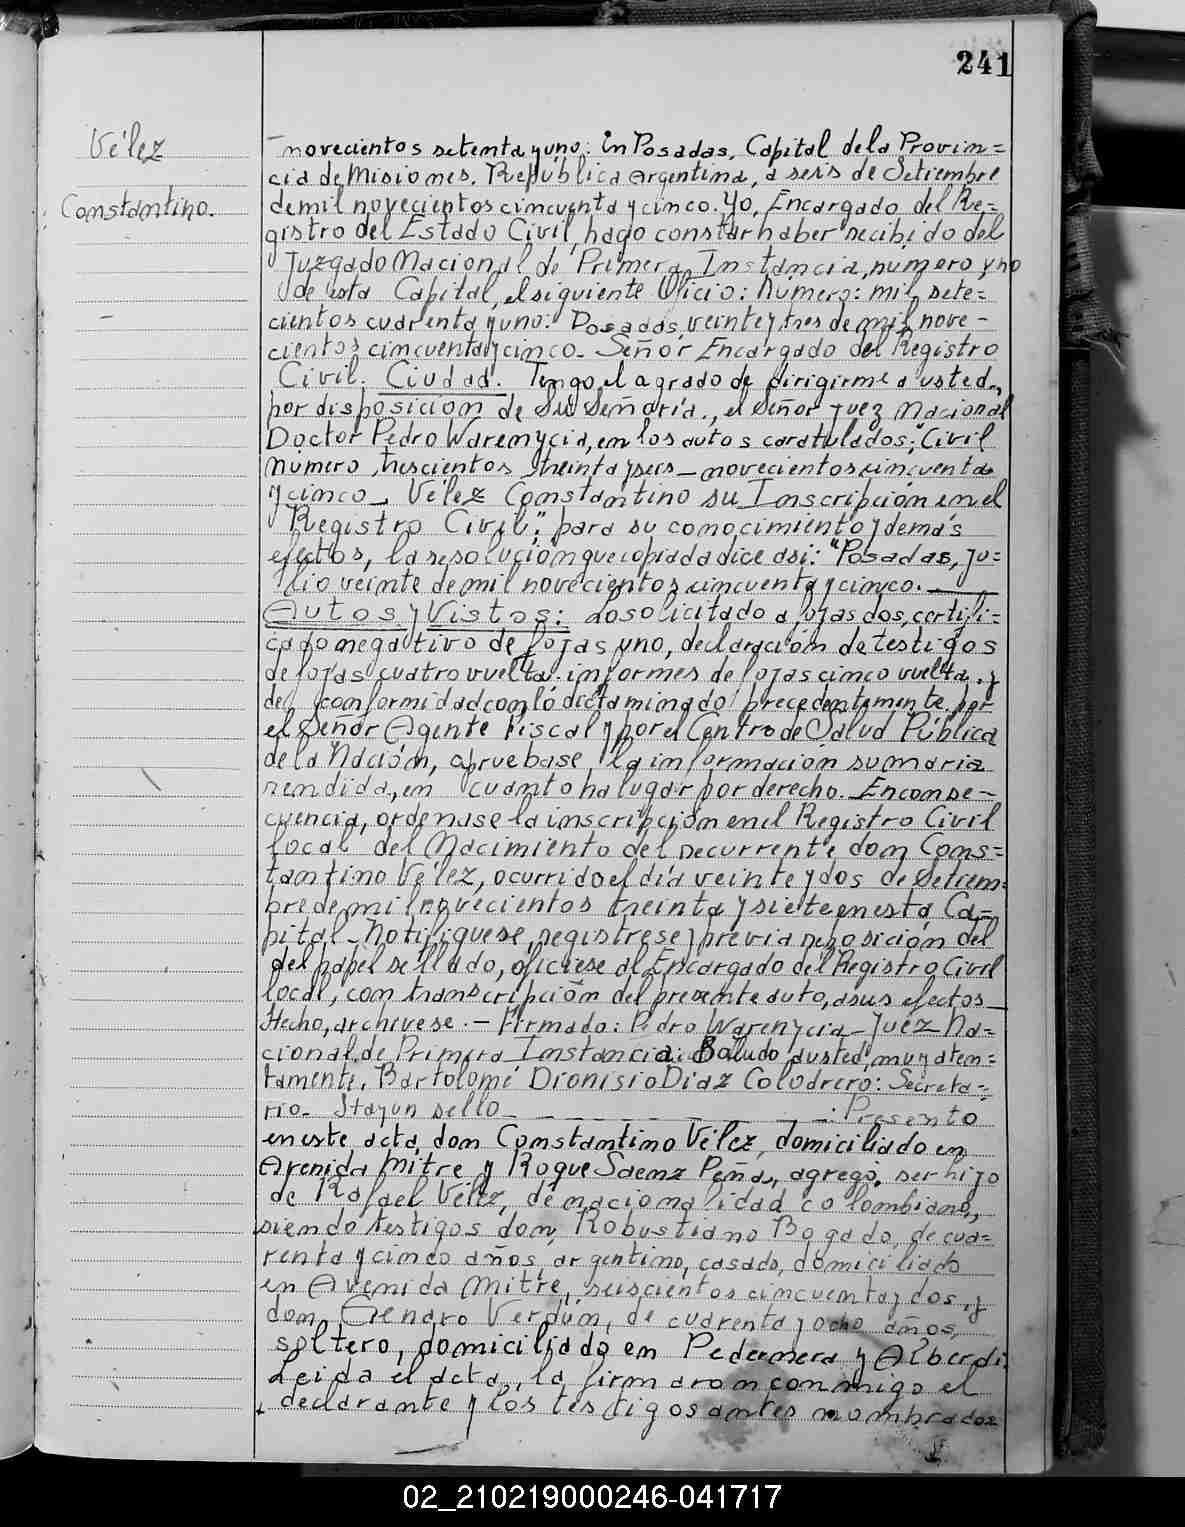 241
Vélez
Constantino.
novecientos setenta y uno: En Posadas, Capital de la Provin=
cia de Misiones, República Argentina, a seis de Setiembre
de mil novecientos cincuenta y cinco. Yo, Encargado del Re=
gistro del Estado Civil, hago constar haber recibido del
Juzgado Nacional de Primera Instancia, número uno
de esta Capital, el siguiente Oficio: Número: mil sete=
cientos cuarenta y uno. Posadas, veinte y tres de mil nove-
cientos cincuenta y cinco. Señor Encargado del Registro
Civil. Ciudad. Tengo el agrado de dirigirme a usted,
por disposición de Su Señoría, el Señor Juez Nacional
Doctor Pedro Warenycia, en los autos caratulados: "Civil
número trescientos treinta y seis - novecientos cincuenta
y cinco - Vélez Constantino su Inscripción en el
Registro Civil", para su conocimiento y demás
efectos, la resolución que copiada dice asi: "Posadas, ju=
lio veinte de mil novecientos cincuenta y cinco.
Autos y Vistos: Lo solicitado a fojas dos, certifi=
cado negativo de fojas uno, declaración de testigos
de fojas cuatro vuelta, informes de fojas cinco vuelta, y
de conformidad con lo dictaminado precedentemente por
el Señor Agente Fiscal y por el Centro de Salud Pública
de la Nación, apruebase la información sumaria
rendida, en cuanto ha lugar por derecho. En conse-
cuencia, ordenase la inscripción en el Registro Civil
local del Nacimiento del recurrente don Cons=
tantino Vélez, ocurrido el día veinte y dos de Setiem=
bre de mil novecientos treinta y siete en esta Ca=
pital. Notifiquese, registrese y previa reposición del
del papel sellado, oficiese al Encargado del Registro Civil
local, con transcripción del presente auto, a sus efectos
Hecho, archivese. - Firmado: Pedro Warenycia - Juez Na=
cional de Primera Instancia. Saludo a usted muy aten=
tamente. Bartolomé Dionisio Diaz Colodrero: Secreta=
rio. Hay un sello - : Presente
en este acta, don Constantino Vélez, domiciliado en
Avenida Mitre y Roque Saenz Peña, agregó, ser hijo
de Rafael Vélez, de nacionalidad colombiano,
siendo testigos don Robustiano Bogado, de cua=
renta y cinco años, argentino, casado, domiciliado
en Avenida Mitre, seiscientos cincuenta y dos, y
don Genaro Verdún, de cuarenta y ocho años,
soltero, domiciliado en Pedernera y Alberdi.
Leida el acta, la firmaron conmigo el
declarante y los testigos antes nombrados
02_210219000246-041717